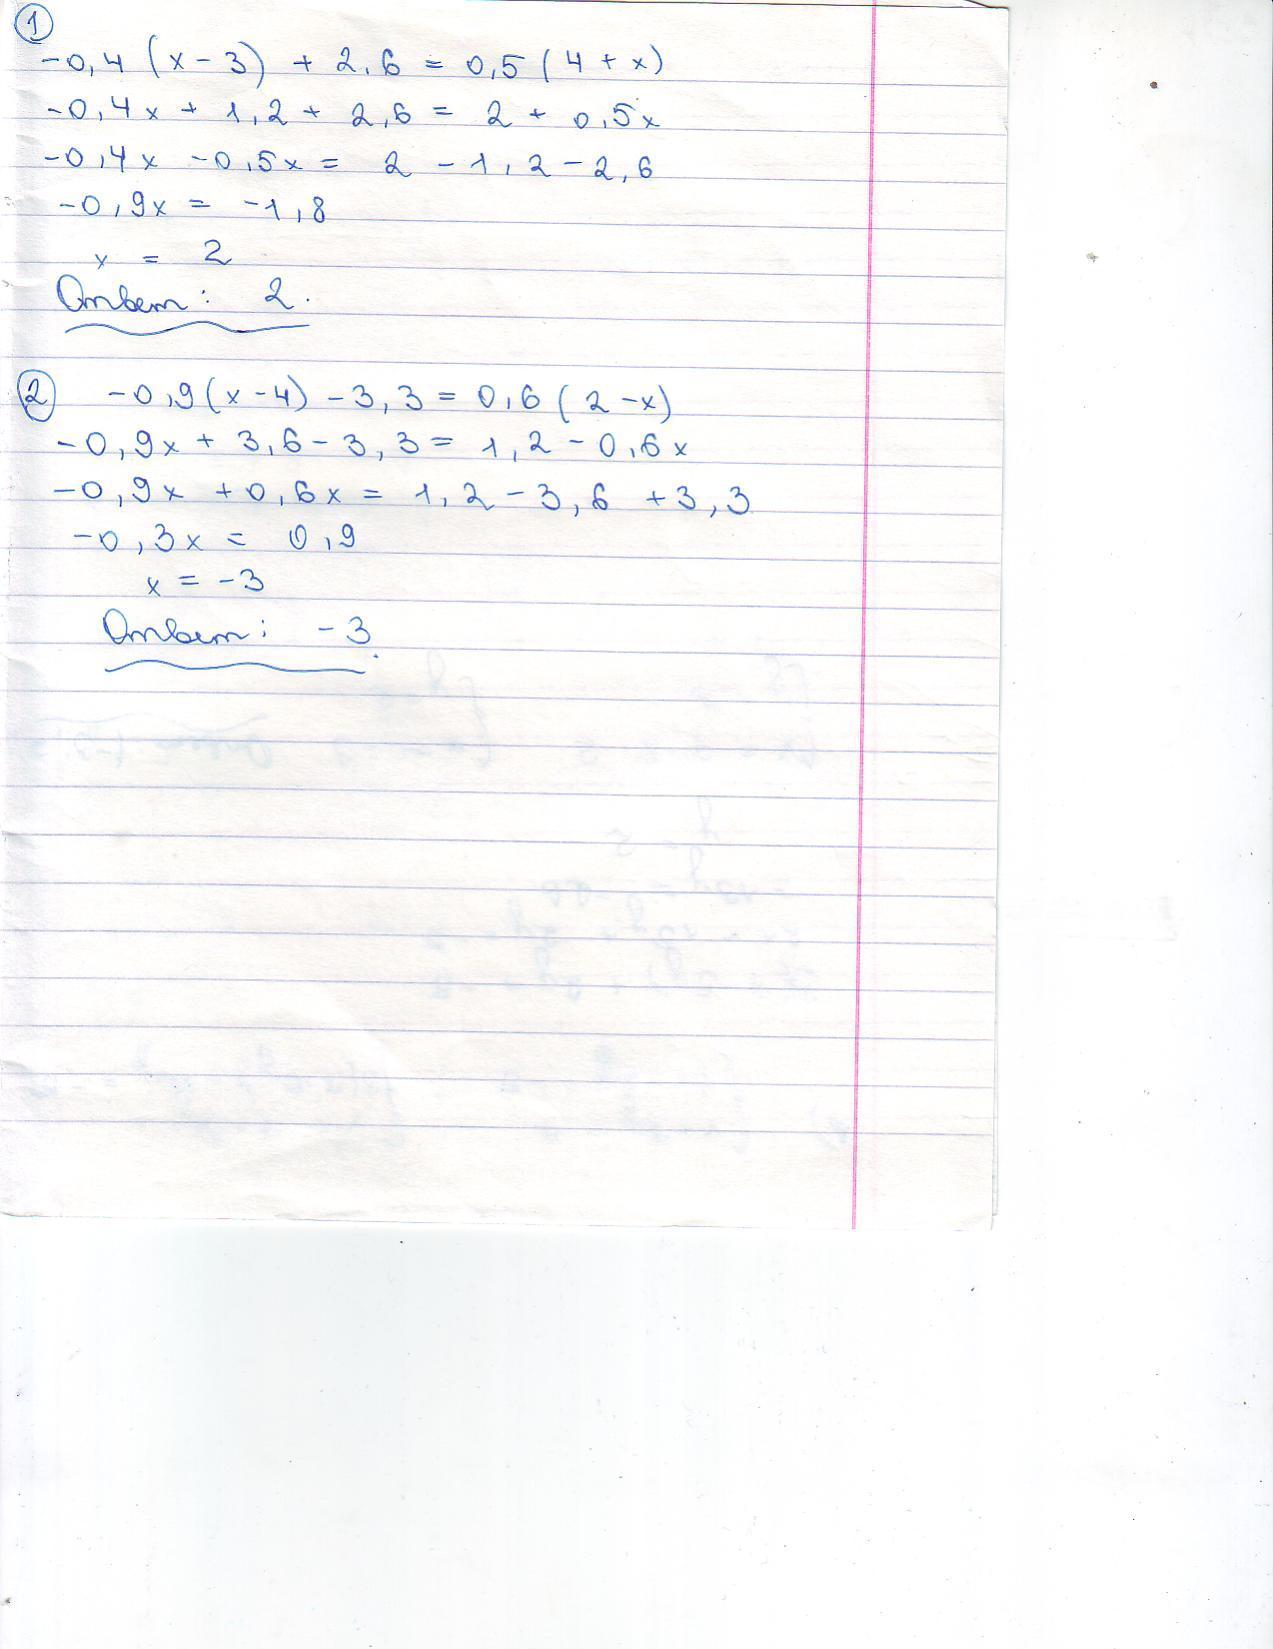 1
-0,4(x-3)+2,6=0,5(4+x)
-0,4x+1,2+2,6=2+0,5x
-0,4x-0,5x=2-1,2-2,6
-0,9x=-1,8
x=2
Ответ: 2.
2 -0,9(x-4)-3,3=0,6(2-x)
-0,9x+3,6-3,3=1,2-0,6x
-0,9x+0,6x=1,2-3,6+3,3
-0,3x=0,9
x=-3
Ответ: -3.